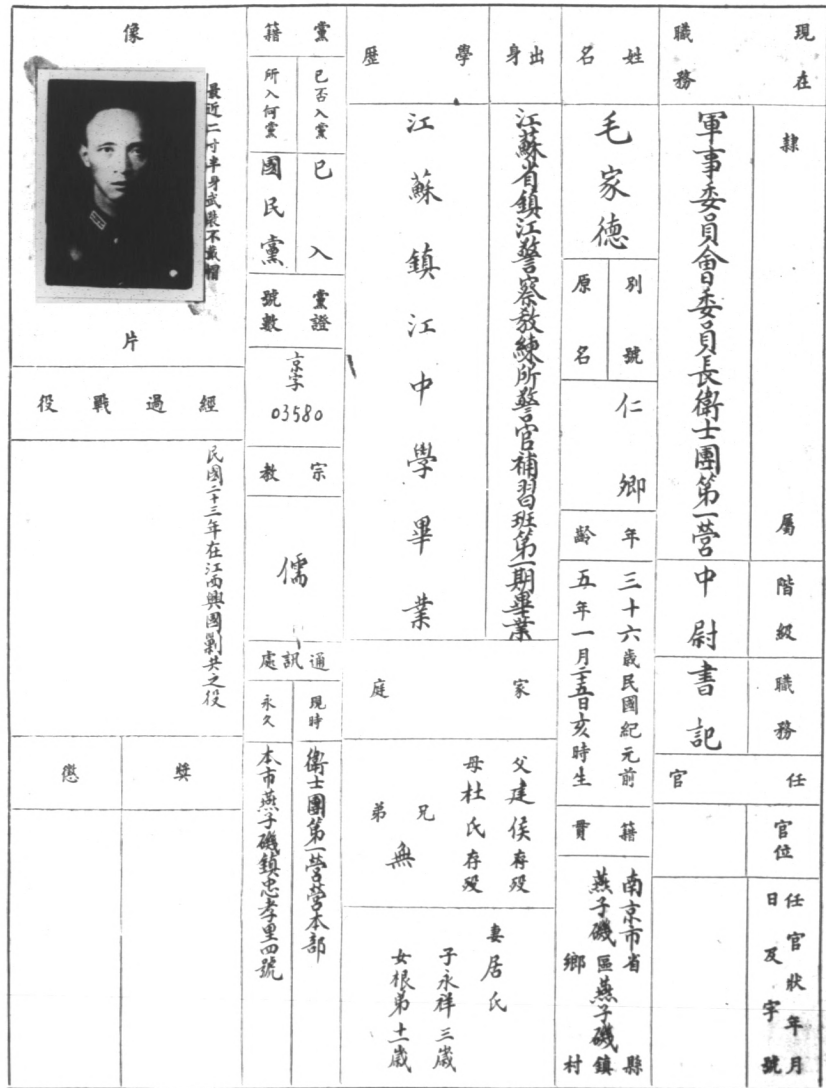 現在職務
隸屬
軍事委員會委員長衛士團第一營
階級
中尉
職務
書記
任官
官位
任官狀年月日及字號
姓名
毛家德
別號
原名
仁卿
年齡
三十六歲民國紀元前
五年一月二十五日亥時生
籍貫
南京市省 縣
燕子磯區燕子磯鎮
鄉 村
出身
江蘇省鎮江警察教練所警官補習班第一期畢業
學歷
江蘇鎮江中學畢業
家庭
父建侯存歿
母杜氏存歿
兄弟
無
妻居氏
子永祥三歲
女根弟十二歲
黨籍
已否入黨
已入
所入何黨
國民黨
黨證號數
京字
03580
宗教
儒
通訊處
現時
衛士團第一營營本部
永久
本市燕子磯鎮忠孝里四號
像片
最近二寸半身武裝不戴帽
經過戰役
民國二十三年在江西興國剿共之役
獎
懲